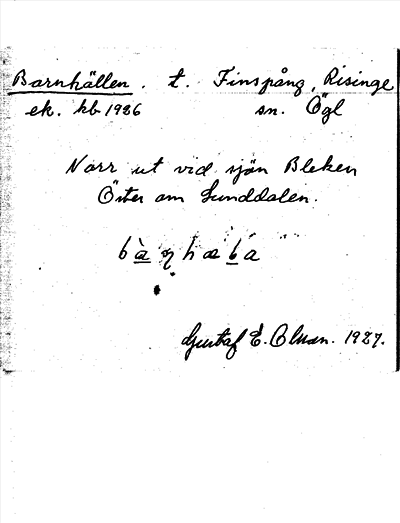 Barnhällen. t. Finspång, Risinge
ek. kb 1926 sn. Ögl
Norr ut vid sjön Bleken
Öster om Lunddalen.
Gustaf E. Olson. 1927.